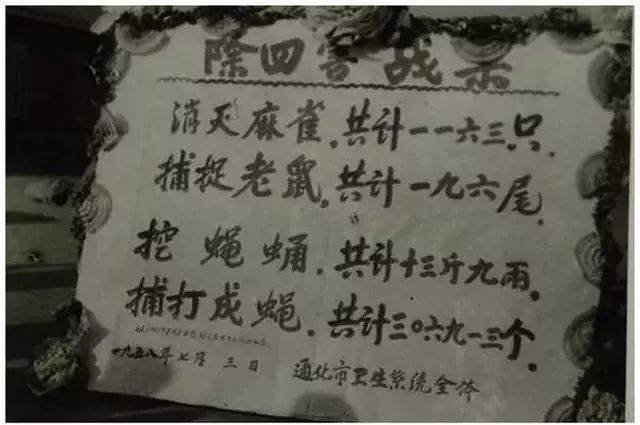 除四害战果
消灭麻雀.共计一一六三只.
捕捉老鼠.共计一九六尾.
挖蝇蛹.共计十三斤九两.
捕打成蝇.共计三〇六九一三个.
一九五八年七月三日 通化市卫生系统全体